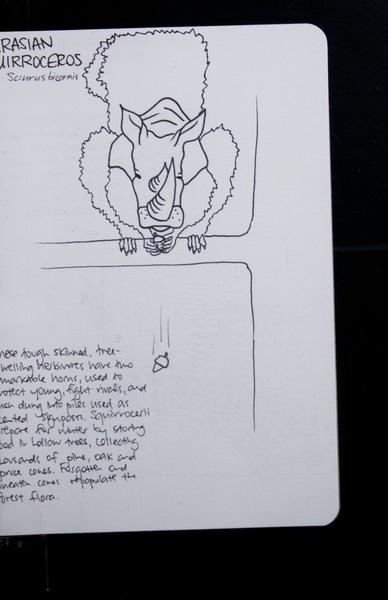 RASIAN
UIRROCEROS
Sciurus bicornis
hese tough skinned, tree-
welling herbivores have two
markable horns, used to
rotect young, fight rivals, and
ush dung into piles used as
cented signposts. Squirrocerii
repare for winter by storing
ood in hollow trees, collecting
housands of pine, oak and
pruce cones. Forgotten and
neaten cones repopulate the
forest flora.